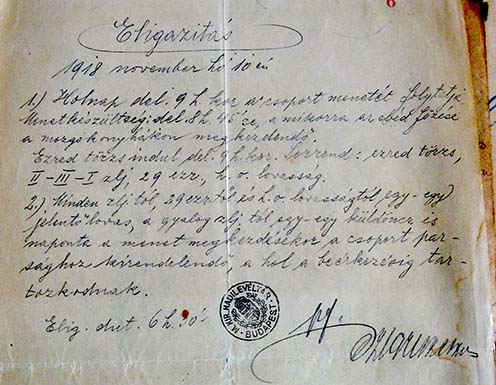 6
Eligazitás
1918 november hó 10 én
1.) Holnap del. 9 h. kor a csoport menetét folytatja
Menetkészültség: del. 8 h 45'ce, a mikorra az ebéd főzése
a mozgókonyhákon megkezdendő.
Ezred törzs indul del. 9 h. kor. Sorrend: ezred törzs,
II–III–I zlj, 29 ezr., h. o. lovasság.
2.) Minden zlj tól, 29 ezr től és h. o. lovasságtól egy-egy
jelentő lovas, a gyalog zlj tól egy-egy küldönc is
naponta a menet megkezdésekor a csoport par-
sághoz kirendelendő, a hol a beérkezésig tar-
tozkodnak.
Elig. dut. 6 h. 30'
M. KIR. HADILEVÉLTÁR BUDAPEST